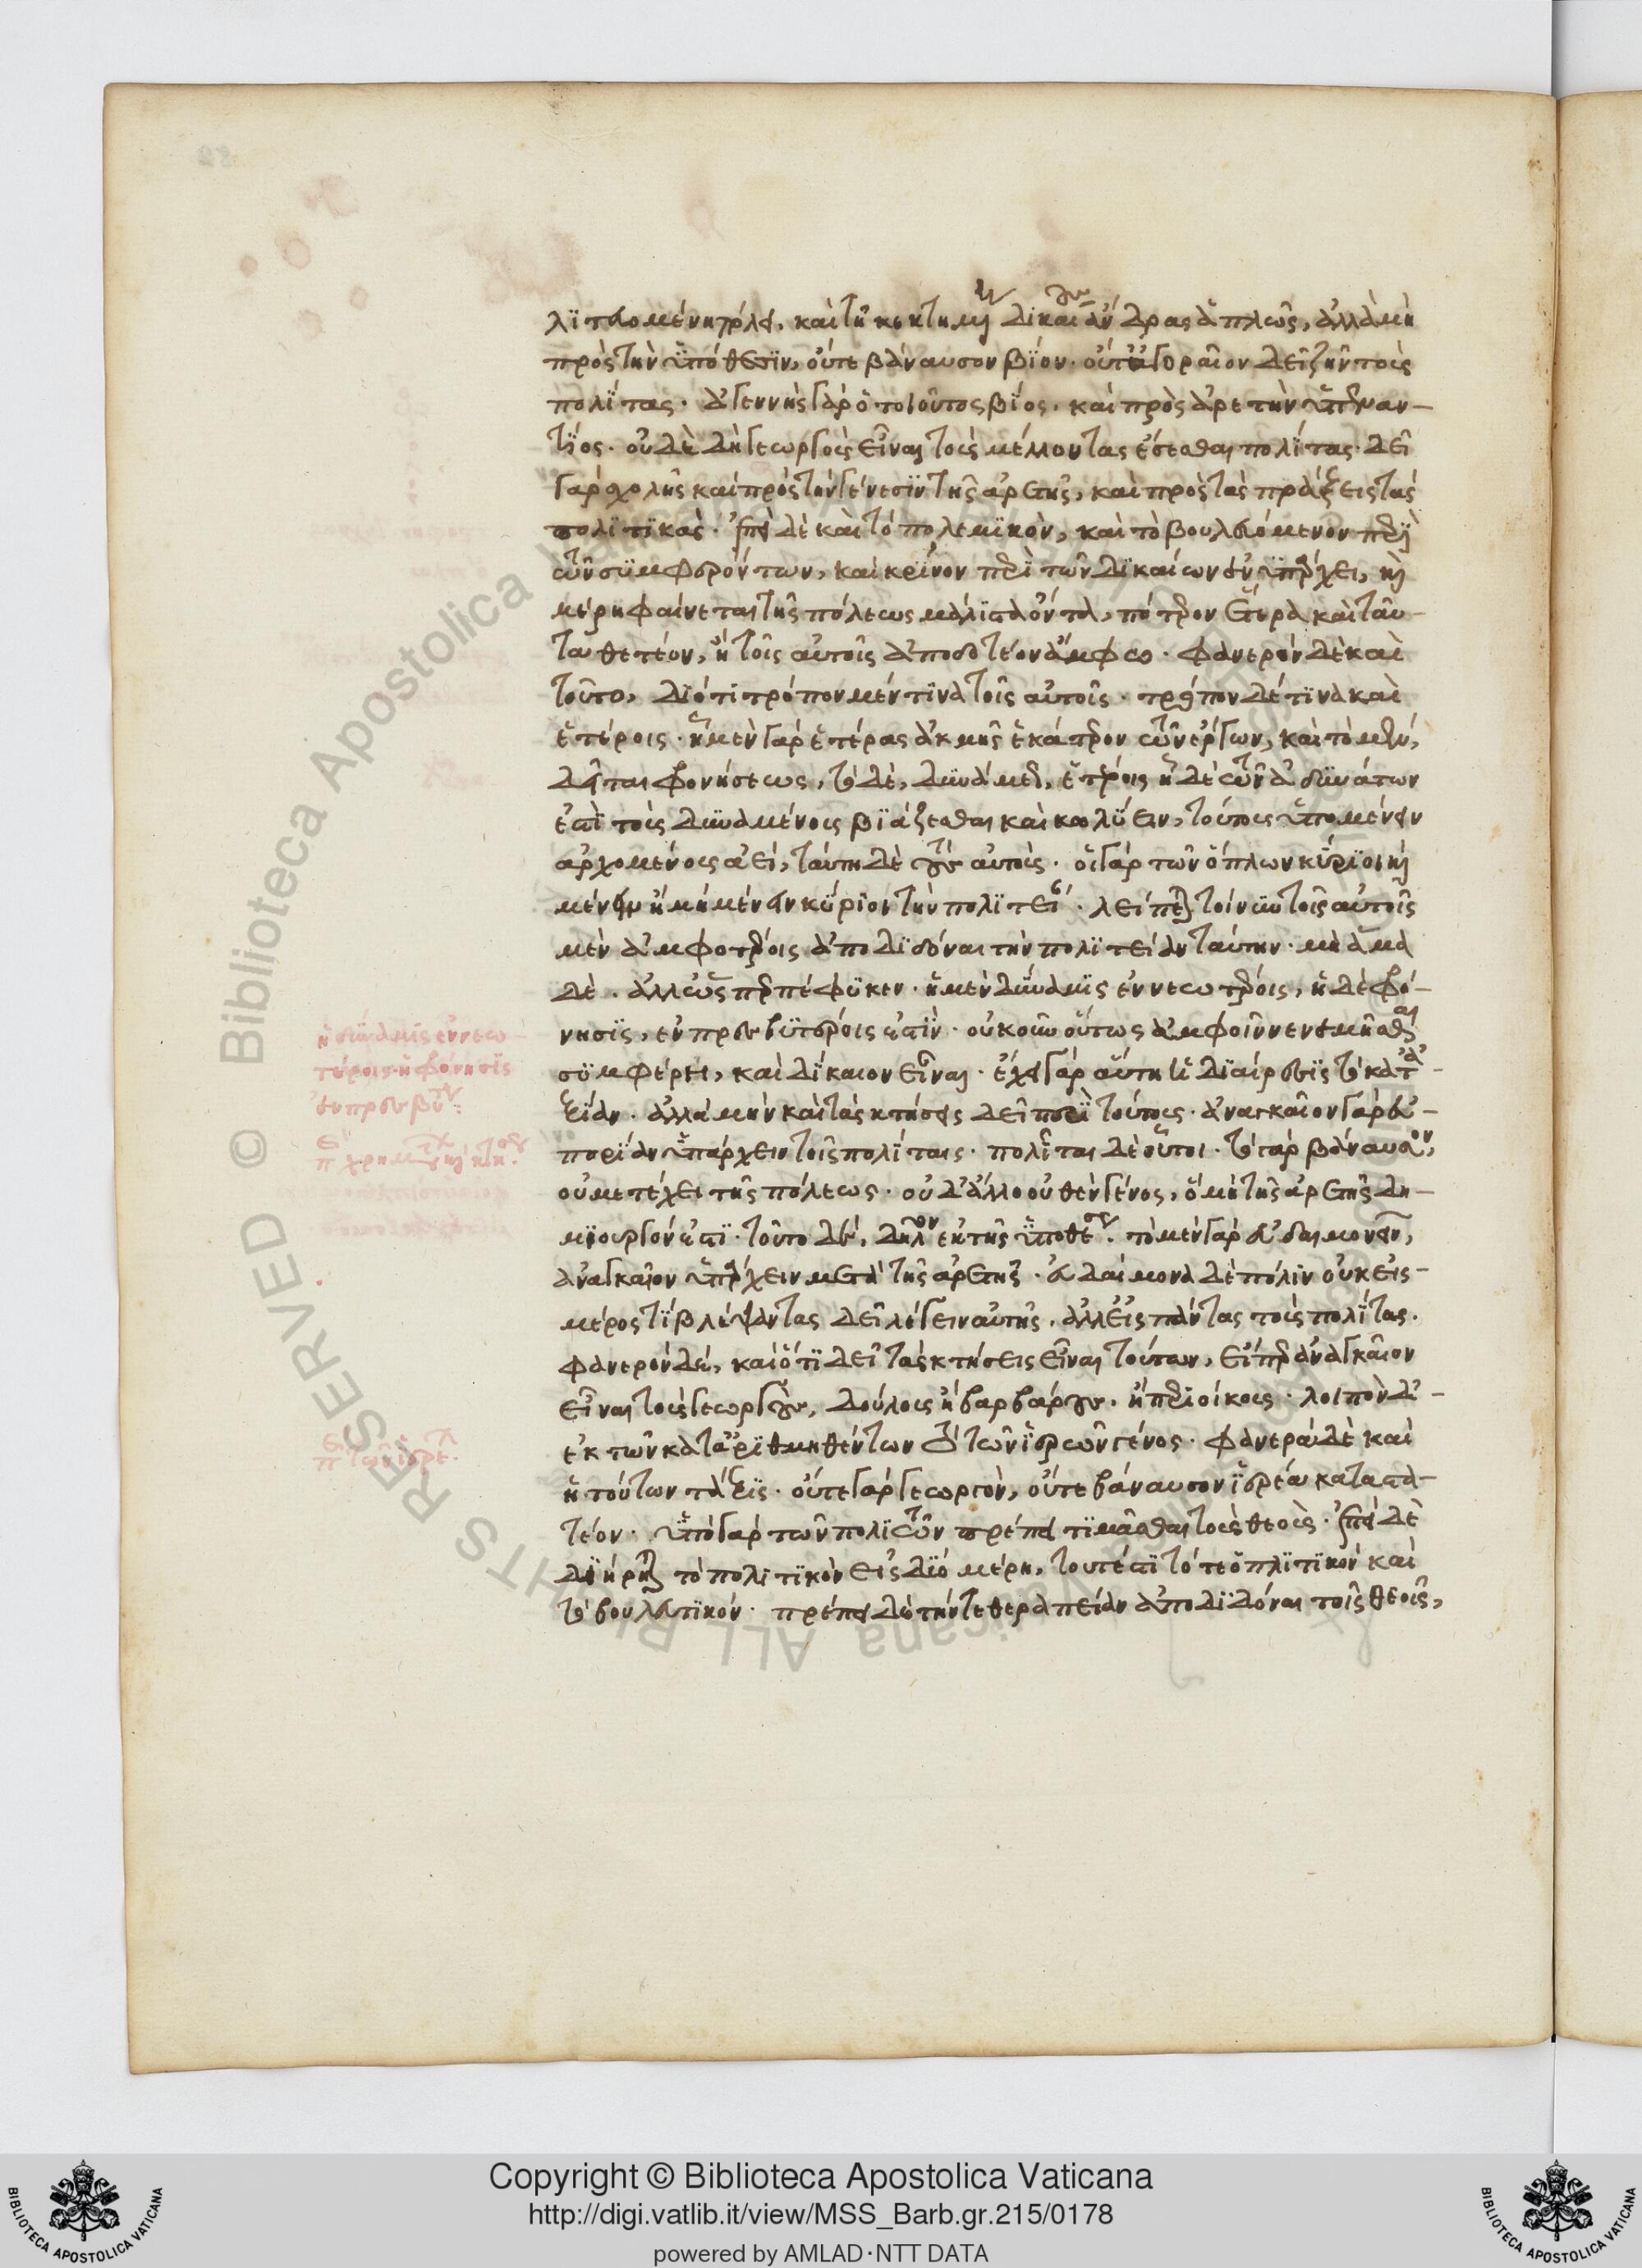 λιτευομένη πόλει. καὶ τῇ κεκτημένῃ δικαίους ἄνδρας ἁπλῶς, ἀλλὰ μὴ
πρὸς τὴν ὑπόθεσιν, οὔτε βάναυσον βίον. οὔτ' ἀγοραῖον δεῖ ζῆν τοὺς
πολίτας. ἀγεννὴς γὰρ ὁ τοιοῦτος βίος. καὶ πρὸς ἀρετὴν ὑπεναν-
τίος. οὐδὲ δὴ γεωργοὺς εἶναι τοὺς μέλλοντας ἔσεσθαι πολίτας. δεῖ
γὰρ σχολῆς καὶ πρὸς τὴν γένεσιν τῆς ἀρετῆς, καὶ πρὸς τὰς πράξεις τὰς
πολιτικάς. ἐπεὶ δὲ καὶ τὸ πολεμικὸν, καὶ τὸ βουλευόμενον περὶ
τῶν συμφερόντων, καὶ κρῖνον περὶ τῶν δικαίων ἐνυπάρχει, καὶ
μέρη φαίνεται τῆς πόλεως μάλιστα ὄντα, πότερον ἕτερα καὶ ταῦ-
τα θετέον, ἢ τοῖς αὐτοῖς ἀποδοτέον ἄμφω. φανερὸν δὲ καὶ
τοῦτο, διότι τρόπον μέν τινα τοῖς αὐτοῖς. τρόπον δέ τινα καὶ
ἑτέροις. ᾗ μὲν γὰρ ἑτέρας ἀκμῆς ἑκάτερον τῶν ἔργων, καὶ τὸ μὲν,
δεῖται φρονήσεως, τὸ δὲ, δυνάμεως, ἑτέροις ᾗ δὲ τῶν ἀδυνάτων
ἐστὶ τοὺς δυναμένους βιάζεσθαι καὶ κωλύειν, τούτους ὑπομένειν
ἀρχομένους ἀεί, ταύτῃ δὲ τοὺς αὐτούς. οἱ γὰρ τῶν ὅπλων κύριοι καὶ
μένειν ἢ μὴ μένειν κύριοι τὴν πολιτείαν. λείπεται τοίνυν τοῖς αὐτοῖς
μὲν ἀμφοτέροις ἀποδιδόναι τὴν πολιτείαν ταύτην. μὴ ἅμα
δὲ. ἀλλ' ὥσπερ πέφυκεν. ἡ μὲν δύναμις ἐν νεωτέροις, ἡ δὲ φρό-
νησις, ἐν πρεσβυτέροις ἐστίν. οὐκοῦν οὕτως ἀμφοῖν νενεμῆσθαι
συμφέρει, καὶ δίκαιον εἶναι. ἔχει γὰρ αὕτη ἡ διαίρεσις τὸ κατ' ἀ-
ξίαν. ἀλλὰ μὴν καὶ τὰς κτήσεις δεῖ περὶ τούτους. ἀναγκαῖον γὰρ εὐ-
πορίαν ὑπάρχειν τοῖς πολίταις. πολῖται δὲ οὗτοι. τὸ γὰρ βάναυσον,
οὐ μετέχει τῆς πόλεως. οὐδ' ἄλλο οὐθὲν γένος, ὃ μὴ τῆς ἀρετῆς δη-
μιουργόν ἐστι. τοῦτο δὲ, δῆλον ἐκ τῆς ὑποθέσεως. τὸ μὲν γὰρ εὐδαιμονεῖν,
ἀναγκαῖον ὑπάρχειν μετὰ τῆς ἀρετῆς. εὐδαίμονα δὲ πόλιν οὐκ εἰς
μέρος τι βλέψαντας δεῖ λέγειν αὐτῆς. ἀλλ' εἰς πάντας τοὺς πολίτας.
φανερὸν δὲ, καὶ ὅτι δεῖ τὰς κτήσεις εἶναι τούτων, εἴπερ ἀναγκαῖον
εἶναι τοὺς γεωργοὺς, δούλους ἢ βαρβάρους. ἢ περιοίκους. λοιπὸν δ'
ἐκ τῶν καταριθμηθέντων τὸ τῶν ἱερέων γένος. φανερὰ δὲ καὶ
ἡ τούτων τάξις. οὔτε γὰρ γεωργὸν, οὔτε βάναυσον ἱερέα καταστα-
τέον. ὑπὸ γὰρ τῶν πολιτῶν πρέπει τιμᾶσθαι τοὺς θεούς. ἐπεὶ δὲ
διῄρηται τὸ πολιτικὸν εἰς δύο μέρη, τουτέστι τό τε ὁπλιτικὸν καὶ
τὸ βουλευτικόν. πρέπει δὲ τήν τε θεραπείαν ἀποδιδόναι τοῖς θεοῖς,
ἡ δύναμις ἐν νεω-
τέροις ἡ φρόνησις
ἐν πρεσβυτ.
Copyright © Biblioteca Apostolica Vaticana
http://digi.vatlib.it/view/MSS_Barb.gr.215/0178
powered by AMLAD·NTT DATA
BIBLIOTECA APOSTOLICA VATICANA
BIBLIOTECA APOSTOLICA VATICANA